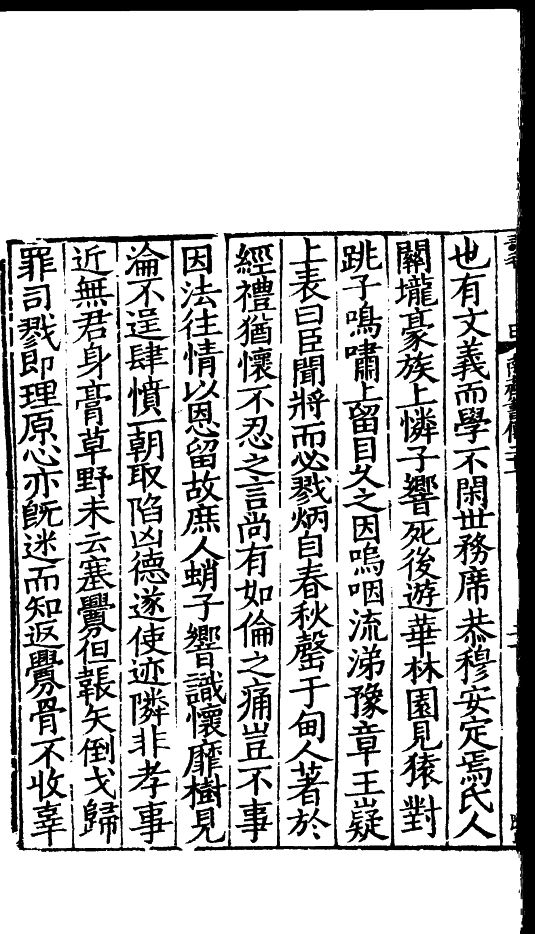 也有文義而學不閑世務席恭穆安定焉氏人
關壠豪族上憐子響死後遊華林園見猿對
跳子鳴嘯上留目久之因嗚咽流涕豫章王嶷
上表曰臣聞將而必戮炳自春秋罄于甸人著於
經禮猶懷不忍之言尚有如倫之痛豈不事
因法往情以恩留故庶人蛸子響識懷靡樹見
淪不逞肆憤一朝取陷凶德遂使迹隣非孝事
近無君身膏草野未云塞釁但韔矢倒戈歸
罪司戮即理原心亦旣迷而知返釁骨不收辜